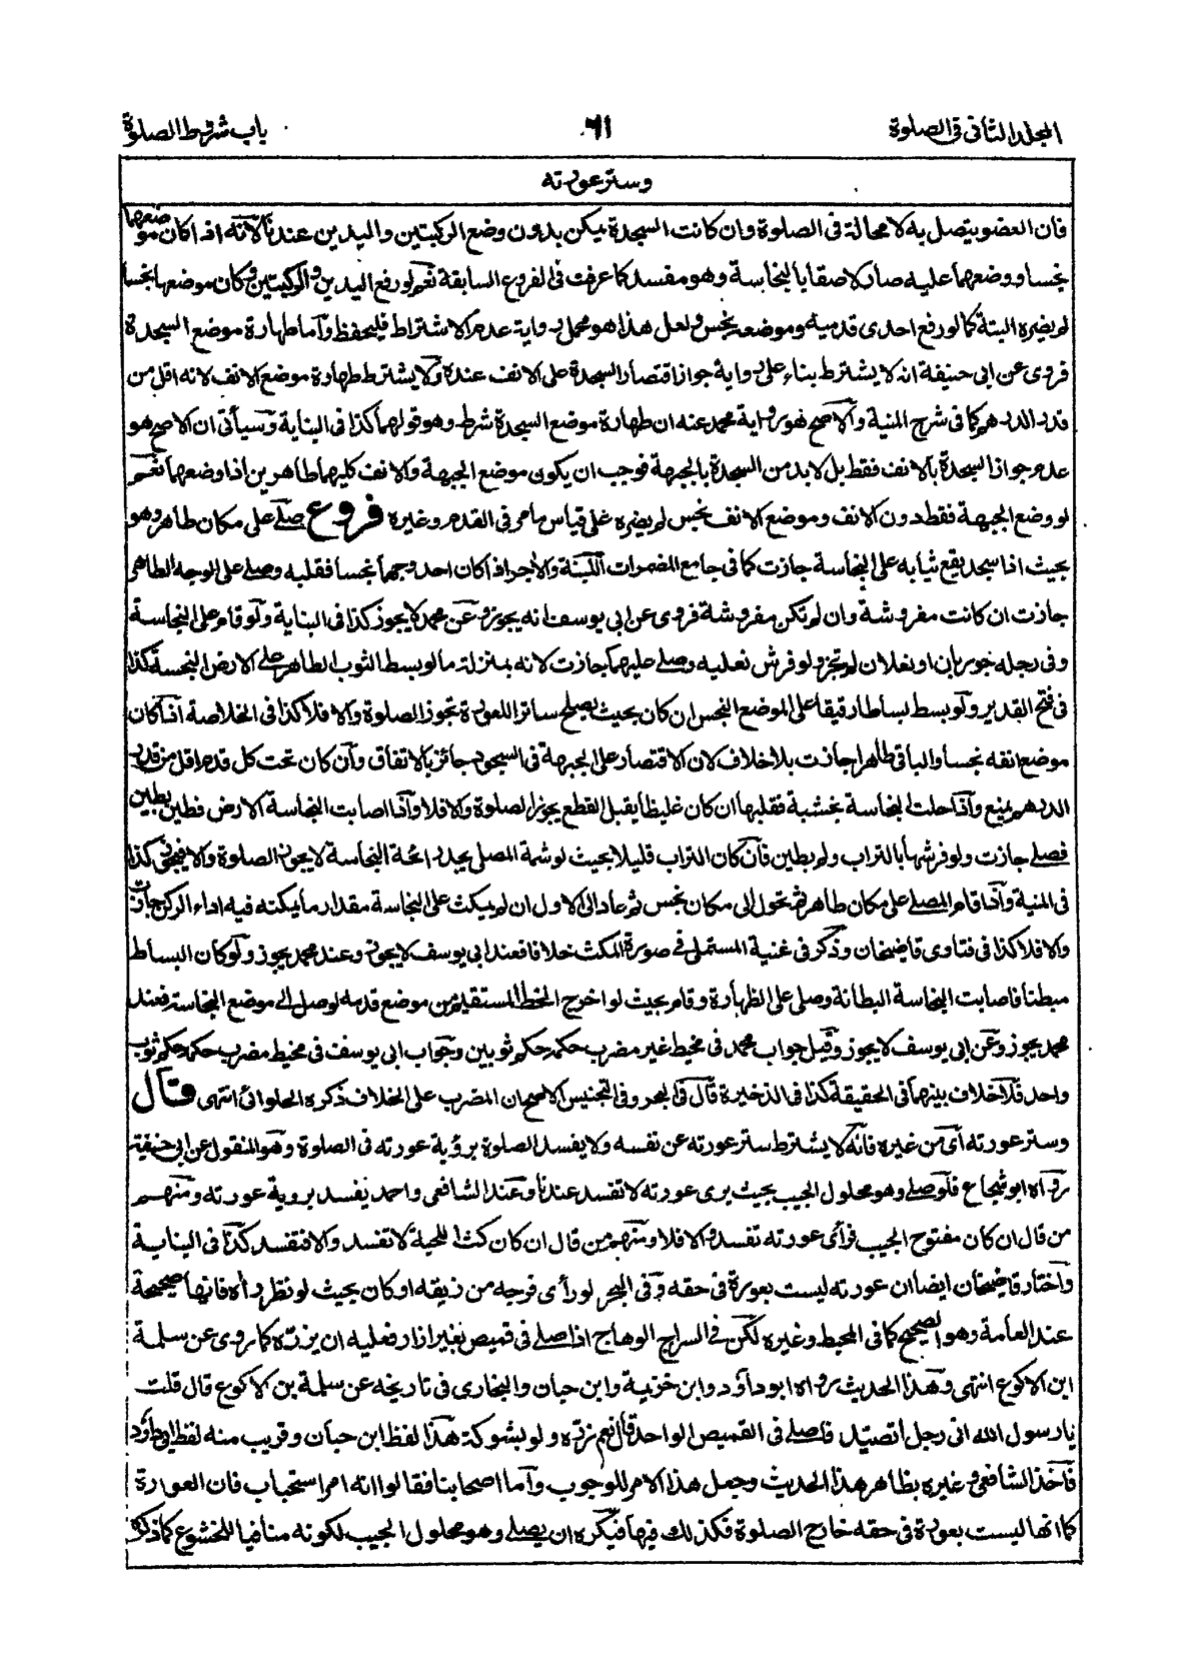 المجلد الثانی فی الصلوة
٦١
باب شروط الصلوة
وستر عورته
فان العضو یتصل به لا محالة فی الصلوة وان کانت السجدة یمکن بدون وضع الرکبتین والیدین عندنا لانه اذا کان موضعهما
نجسا ووضعهما علیه صار لاصقا بالنجاسة وهو مفسد کما عرفت فی الفروع السابقة نعم لو رفع الیدین والرکبتین وکان موضعها نجسا
لم یضره البتة کما لو رفع احدی قدمیه وموضعه نجس ولعل هذا هو محمل روایة عدم الاشتراط فلیحفظ واما طهارة موضع السجدة
فروی عن ابی حنیفة انه لا یشترط بناء علی روایة جواز اقتصار السجدة علی الانف عنده ولا یشترط طهارة موضع الانف لانه اقل من
قدر الدرهم کما فی شرح المنیة والاصح فهو روایة محمد عنه ان طهارة موضع السجدة شرط وهو قولهما کذا فی البنایة وسیأتی ان الاصح هو
عدم جواز السجدة بالانف فقط بل لا بد من السجدة بالجبهة فوجب ان یکون موضع الجبهة والانف کلیهما طاهرین اذا وضعهما نعم
لو وضع الجبهة فقط دون الانف وموضع الانف نجس لم یضره علی قیاس ما مر فی القدم وغیره فروع صلی علی مکان طاهر وهو
بحیث اذا سجد یقع ثیابه علی النجاسة جازت کما فی جامع المضمرات اللبنة والاجر اذا کان احد وجهها نجسا فقلبه وصلی علی الوجه الطاهر
جازت ان کانت مفروشة وان لم تکن مفروشة فروی عن ابی یوسف انه یجوز وعن محمد لا یجوز کذا فی البنایة ولو قام علی النجاسة
وفی رجله جوربان او نعلان لم تجز ولو فرش نعلیه وصلی علیهما جازت لانه بمنزلة ما لو بسط الثوب الطاهر علی الارض النجسة کذا
فی فتح القدیر ولو بسط بساطا رقیقا علی الموضع النجس ان کان بحیث یصلح ساترا للعورة تجوز الصلوة والا فلا کذا فی الخلاصة اذا کان
موضع انفه نجسا والباقی طاهرا جازت بلا خلاف لان الاقتصار علی الجبهة فی السجود جائز بالاتفاق وان کان تحت کل قدم اقل من قدر
الدرهم یمنع واذا حلت النجاسة بخشبة فقلبها ان کان غلیظا یقبل القطع یجوز الصلوة والا فلا واذا اصابت النجاسة الارض فطین بطین
فصلی جازت ولو فرشها بالتراب ولم یطین فان کان التراب قلیلا بحیث لو شمه المصلی یجد رائحة النجاسة لا یجوز الصلوة والا فیجوز کذا
فی المنیة واذا قام المصلی علی مکان طاهر ثم تحول الی مکان نجس ثم عاد الی الاول ان لم یمکث علی النجاسة مقدار ما یمکنه فیه اداء الرکن جازت
والا فلا کذا فی فتاوی قاضیخان وذکر فی غنیة المستملی فی صورة المکث خلافا فعند ابی یوسف لا یجوز وعند محمد یجوز ولو کان البساط
مبطنا فاصابت النجاسة البطانة وصلی علی الظهارة وقام بحیث لو اخرج الخط المستقیم من موضع قدمه لوصل الی موضع النجاسة فعند
محمد یجوز وعن ابی یوسف لا یجوز وقیل جواب محمد فی مخیط غیر مضرب حکمه حکم ثوبین وجواب ابی یوسف فی مخیط مضرب حکمه حکم ثوب
واحد فلا خلاف بینهما فی الحقیقة کذا فی الذخیرة قال فی البحر وفی التجنیس الاصح ان المضرب علی الخلاف ذکره الحلوائی انتهی قال
وستر عورته ای من غیره فانه لا یشترط ستر عورته عن نفسه ولا یفسد الصلوة برؤیة عورته فی الصلوة وهو المنقول عن ابی حنیفة
رواه ابو شجاع فلو صلی وهو محلول الجیب بحیث یری عورته لا تفسد عندنا وعند الشافعی واحمد یفسد برویة عورته ومنهم
من قال ان کان مفتوح الجیب فرأی عورته تفسد والا فلا ومنهم من قال ان کان کث اللحیة لا تفسد والا فتفسد کذا فی البنایة
واختار قاضیخان ایضا ان عورته لیست بعورة فی حقه وفی البحر لو رأی فرجه من زیقه او کان بحیث لو نظر رأه فانها صحیحة
عند العامة وهو الصحیح کما فی المحیط وغیره لکن فی السراج الوهاج اذا صلی فی قمیص بغیر ازار فعلیه ان یزره کما روی عن سلمة
ابن الاکوع انتهی وهذا الحدیث رواه ابو داؤد وابن خزیمة وابن حبان والبخاری فی تاریخه عن سلمة بن الاکوع قال قلت
یا رسول الله انی رجل اتصید فاصلی فی القمیص الواحد قال نعم زره ولو بشوکة هذا لفظ ابن حبان وقریب منه لفظ ابی داؤد
فاخذ الشافعی وغیره بظاهر هذا الحدیث وجعل هذا الامر للوجوب واما اصحابنا فقالوا انه امر استحباب فان العورة
کما انها لیست بعورة فی حقه خارج الصلوة فکذلك فیها فیکره ان یصلی وهو محلول الجیب لکونه منافیا للخشوع کما ذکره